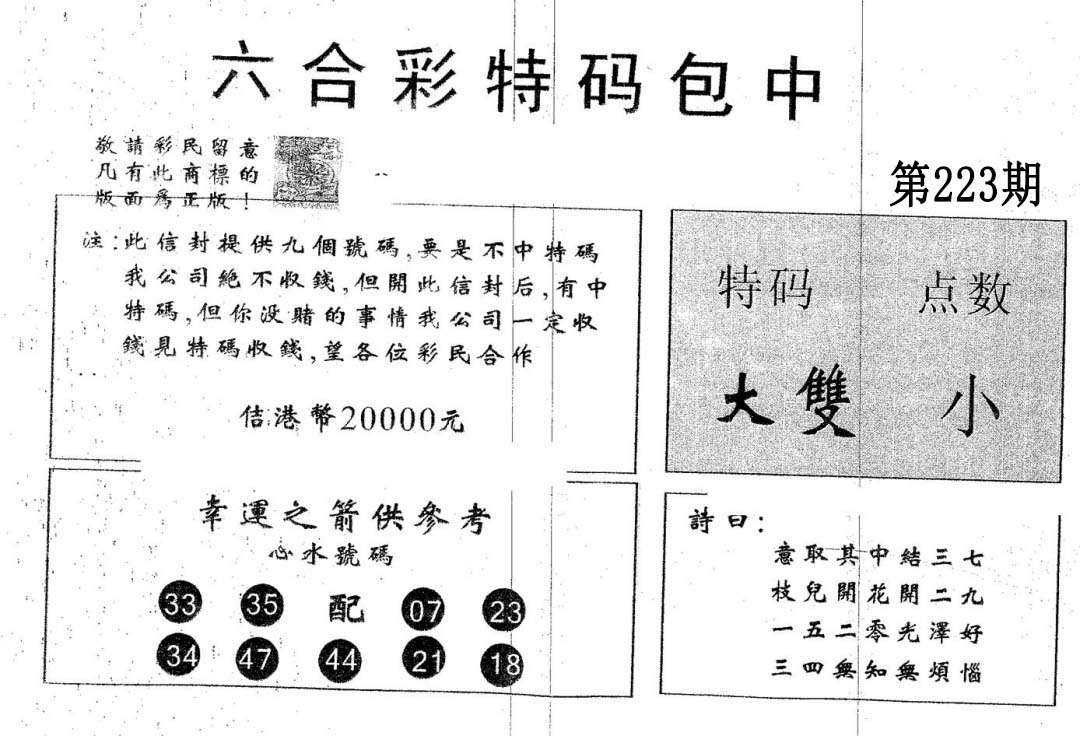 六合彩特码包中
敬請彩民留意
凡有此商標的
版面為正版！
第223期
注：此信封提供九個號碼，要是不中特碼
我公司絶不收錢，但開此信封后，有中
特碼，但你没賭的事情我公司一定收
錢見特碼收錢，望各位彩民合作
佶港幣20000元
特码 点数
大雙 小
幸運之箭供參考
心水號碼
33 35 配 07 23
34 47 44 21 18
詩曰：
意取其中結三七
枝兒開花開二九
一五二零光澤好
三四無知無煩惱